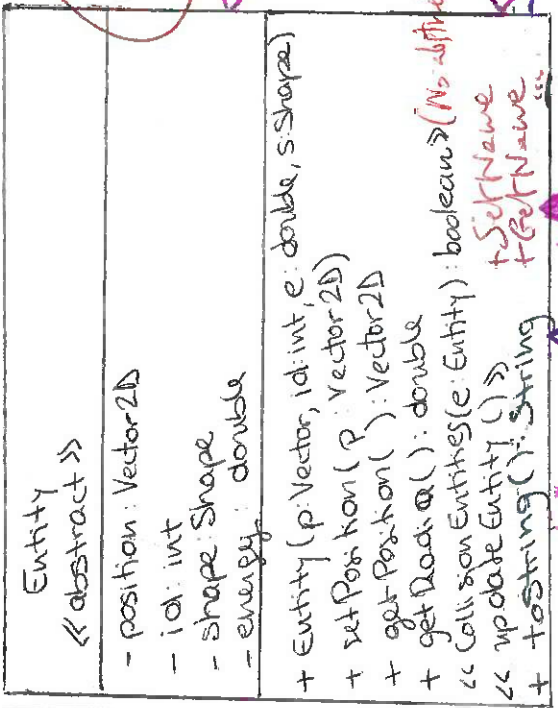 Entity
<< abstract >>
- position: Vector2D
- id: int
- shape: Shape
- energy: double
+ Entity (p: Vector, id: int, e: double, s: Shape)
+ setPosition (p: Vector2D)
+ getPosition ( ): Vector2D
+ getRadio(): double
<< Collision Entities (e: Entity): boolean >> (No
<< update Entity () >> + SetName
+ toString(): String + GetName